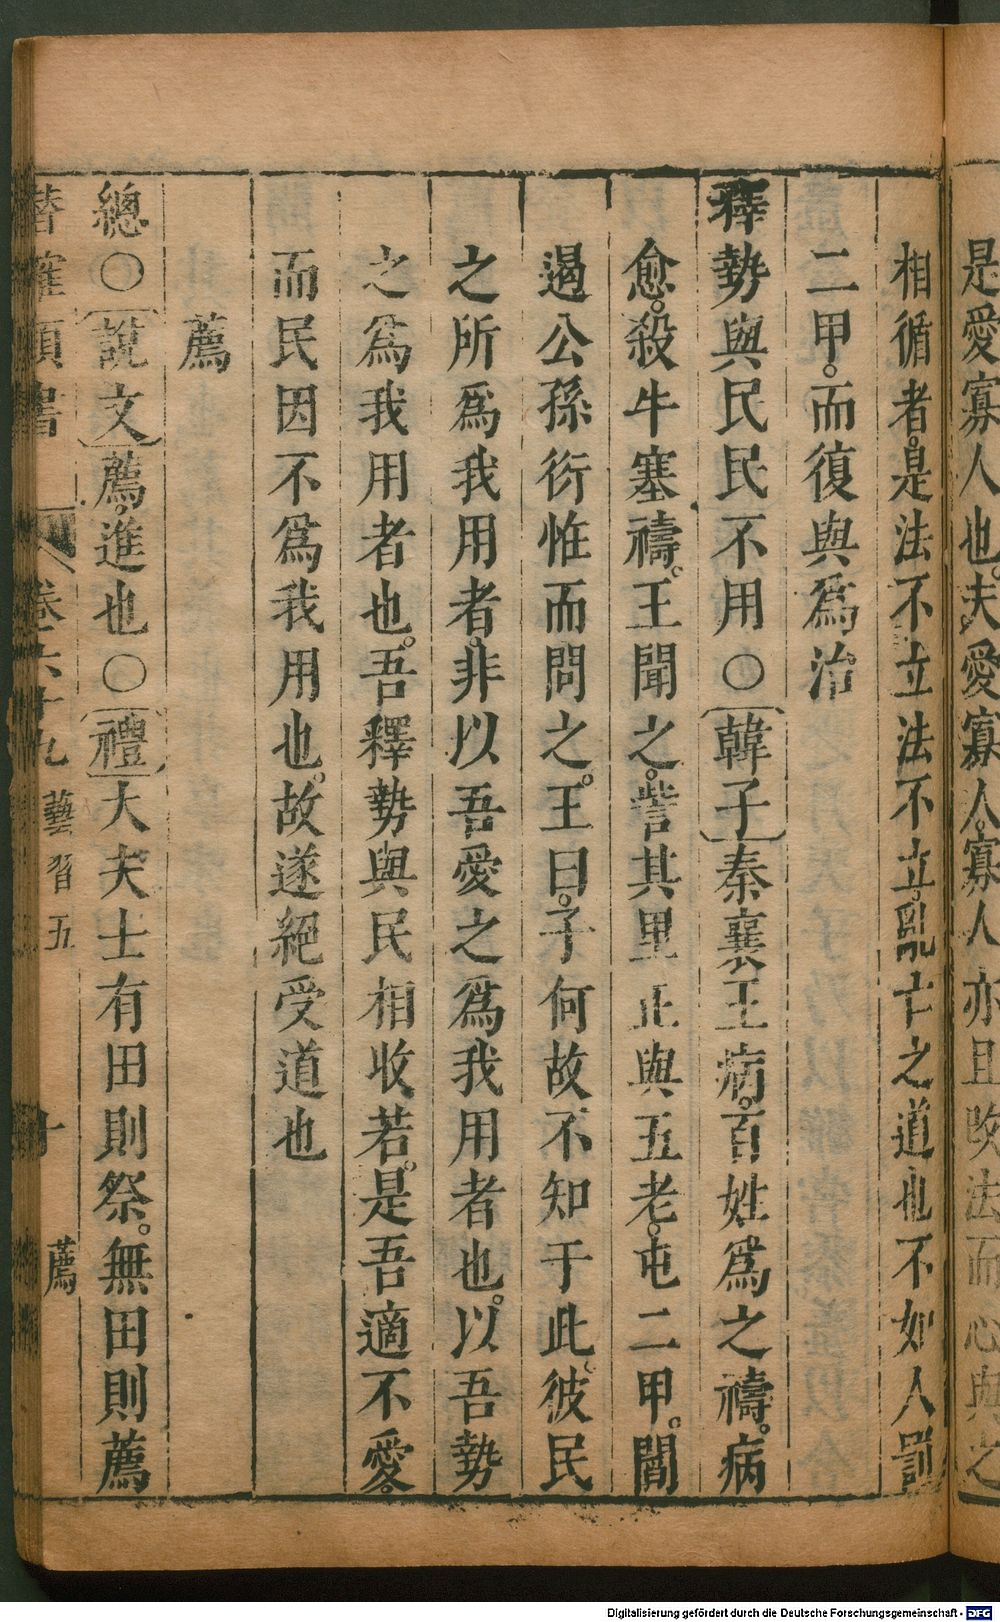 是愛寡人也夫愛寡人寡人亦且改法而心與之
相循者是法不立法不立亂亡之道也不如人罰
二甲而復與爲治
釋勢與民民不用○韓子秦襄王病百姓爲之禱病
愈殺牛塞禱王聞之訾其里正與五老屯二甲閻
遏公孫衍惟而問之王曰子何故不知于此彼民
之所爲我用者非以吾愛之爲我用者也以吾勢
之爲我用者也吾釋勢與民相收若是吾適不愛
而民因不爲我用也故遂絕受道也
薦
總○說文薦進也○禮大夫士有田則祭無田則薦
類書 卷六十九 藝習五 十 薦
Digitalisierung gefördert durch die Deutsche Forschungsgemeinschaft - DFG